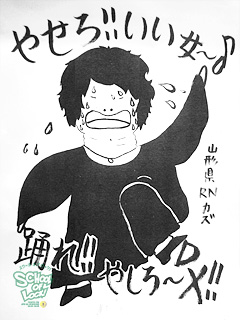 やせろ!!いい女〜♪
山形県
RN
カズ
踊れ!!
やしろ〜X!!
SCHOOL
OF
LOCK!